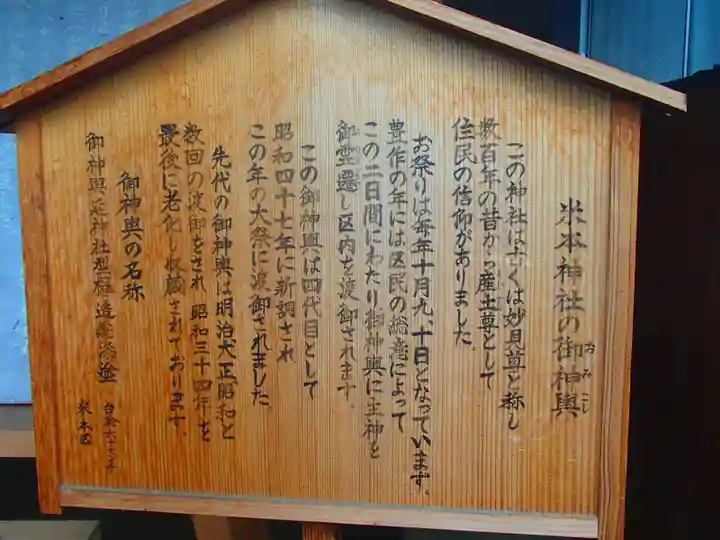 米本神社の御神輿
おみこし
この神社は古くは妙見尊と称し
数百年の昔から産土尊として
住民の信仰がありました。
お祭りは毎年十月九、十日となっています。
豊作の年には区民の総意によって
この二日間にわたり御神輿に主神を
御霊遷し区内を渡御されます。
この御神輿は四代目として
昭和四十七年に新調され
この年の大祭に渡御されました。
先代の御神輿は明治大正昭和と
数回の渡御をされ昭和三十四年を
最後に老化し収蔵されております。
御神輿の名称
御神輿延神社型 造 塗
米本区